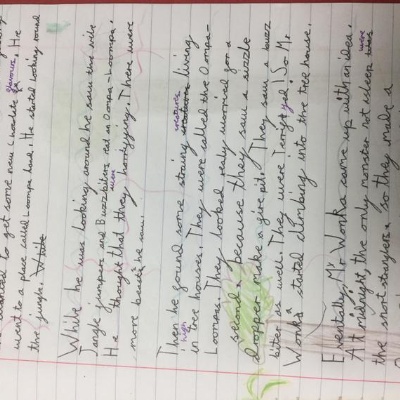 wanted to get some new chocolate flavour. He
went to a place called Loompa land. He stated looking round
this jungle. While
While he was looking around he saw the vile
Jangle jumpers and Buzzbiters and an Oompa-Loompa.
He thought that they were horifying. There were
more beasts he saw.
Then he found some straing creatures creatures living
in high tree houses. They were called the Oompa-
Loompas. They looked realy worried for a
second, because they saw a sizzle
dropper make a fire pit. They saw a buzz
biter as well. They were Terifyed! So Mr.
Wonka stated climbing into the tree house.
Eventally, Mr Wonka came up with an idea.
At midnight, the only monster not asleep were
the short stranglers so they made a